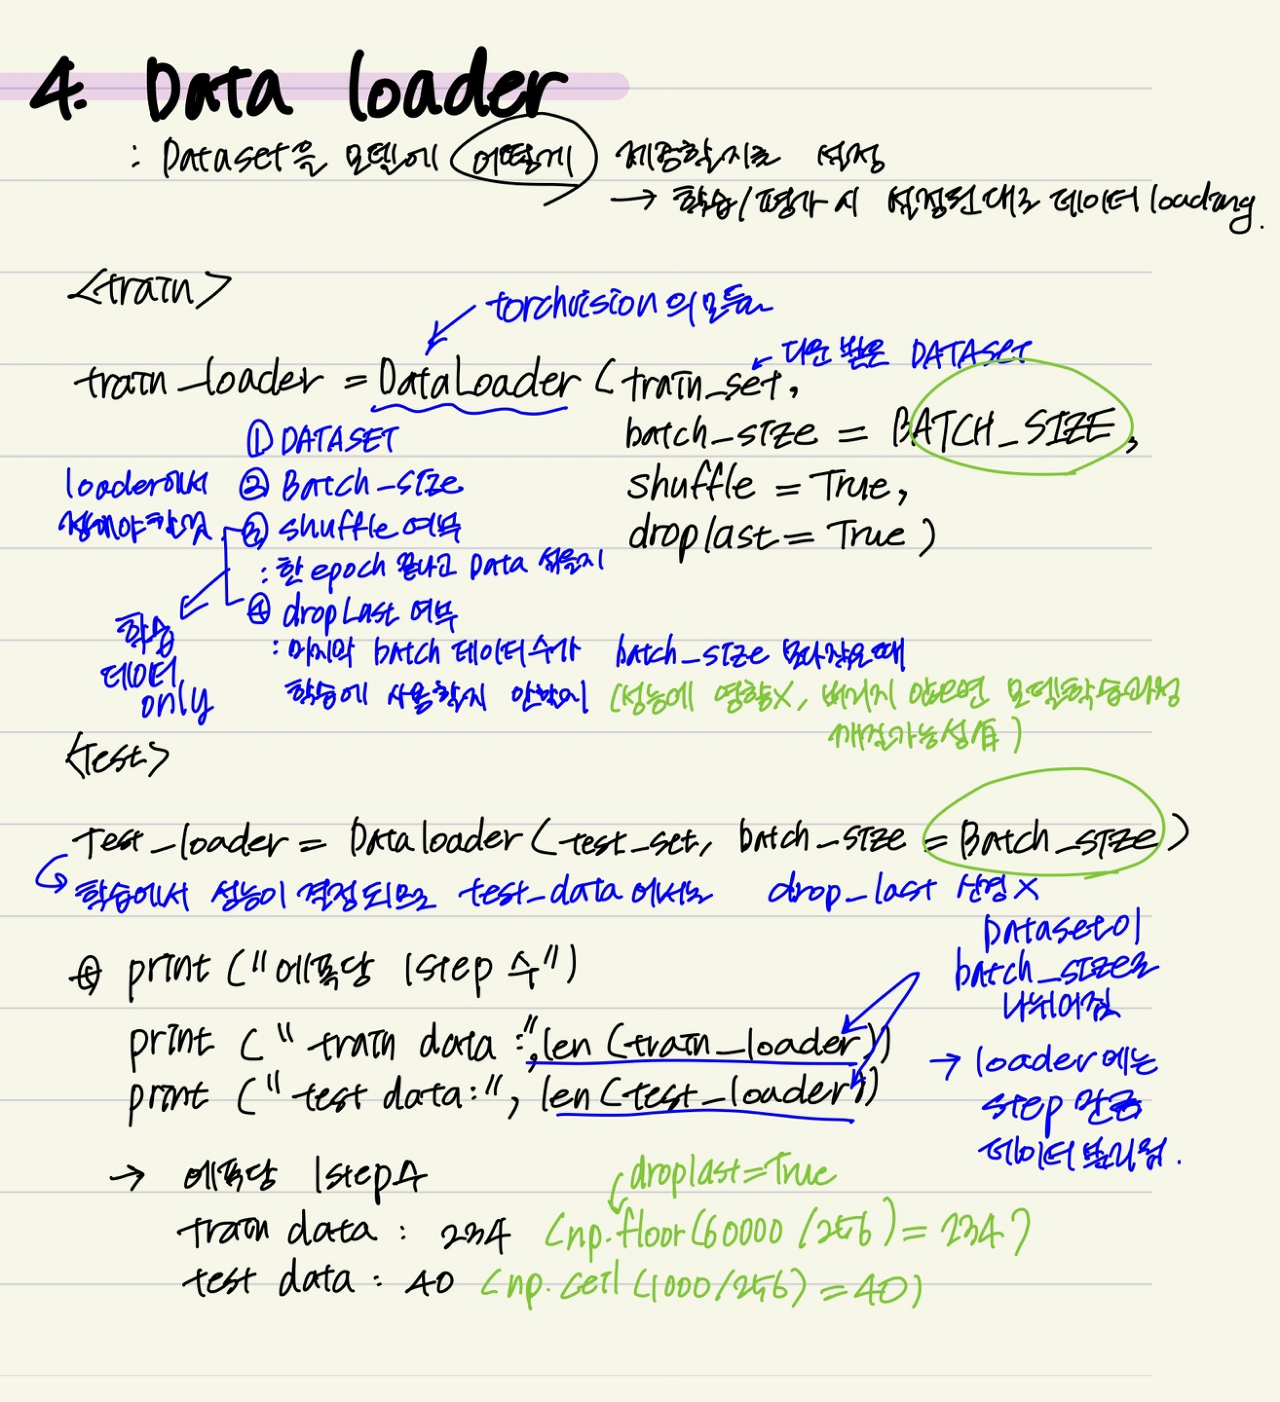 4. Data loader
: Dataset을 모델에 어떻게 제공할지로 설정
→ 학습/평가 시 설정된대로 데이터 loading.
<train>
torchvision의 모듈
다운 받은 DATASET
train_loader = DataLoader (train_set,
batch_size = BATCH_SIZE,
shuffle = True,
droplast = True)
loader에서 정해야 할 것
① DATASET
② Batch_size
③ shuffle 여부
: 한 epoch 끝나고 Data 섞을지
④ dropLast 여부
: 마지막 batch 데이터수가 batch_size 보다 작을때
학습에 사용할지 안할지 (성능에 영향X, 버리지 않으면 모델학습과정
깨질가능성有)
학습
데이터
only
<Test>
Test_loader = Dataloader (test_set, batch_size = Batch_size)
학습에서 성능이 결정되므로 test_data에서는 drop_last 상경X
Dataset이
batch_size로
나뉘어짐
→ loader에는
step 만큼
데이터 분리됨.
print ("에폭당 1step 수")
print ("train data :", len (train_loader))
print ("test data:", len (test_loader))
→ 에폭당 1step수
droplast=True
train data : 234 (np.floor(60000/256) = 234)
test data : 40 (np.ceil (1000/256) = 40)